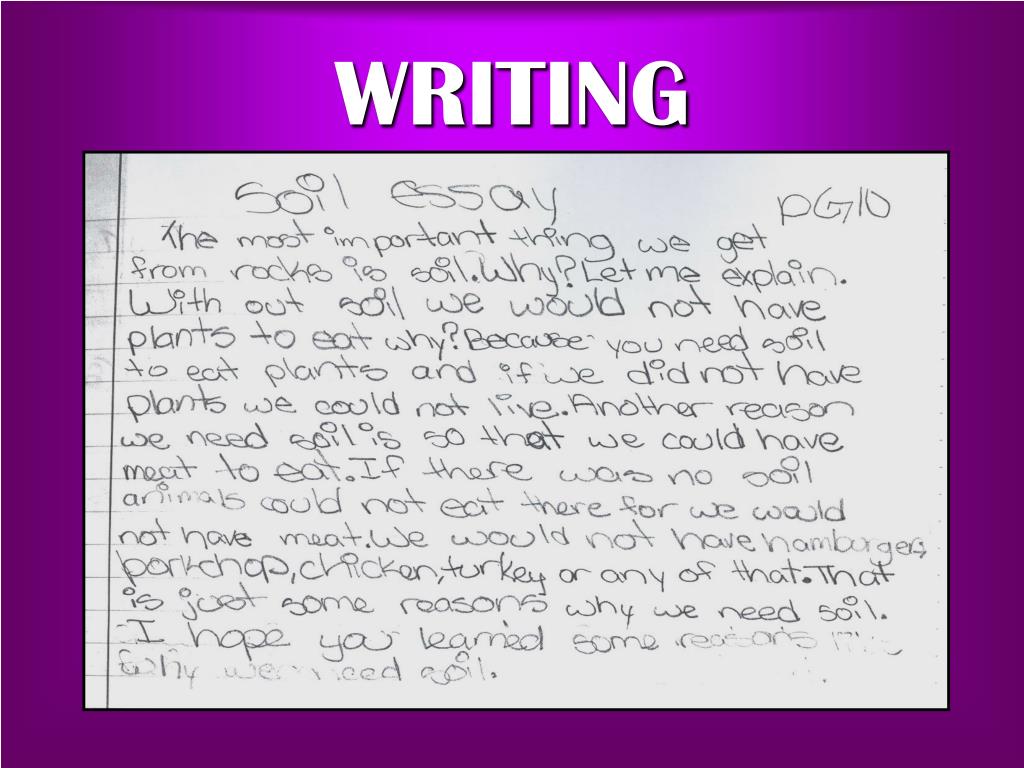 WRITING
Soil essay pG10
The most important thing we get
from rocks is soil. Why? Let me explain.
With out soil we would not have
plants to eat why? Because you need soil
to eat plants and if we did not have
plants we could not live. Another reason
we need soil is so that we could have
meat to eat. If there was no soil
animals could not eat there for we would
not have meat. We would not have hamburgers,
porkchop, chicken, turkey or any of that. That
is just some reasons why we need soil.
I hope you learned some reasons
why we need soil.